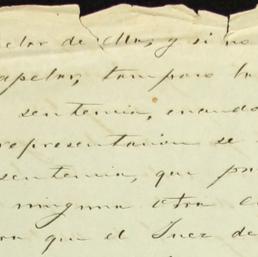 apelar de ellas, y si no
apelar, tampoco
sentencia, cuando
representacion se
sentencia, que
ninguna otra
que el Juez de